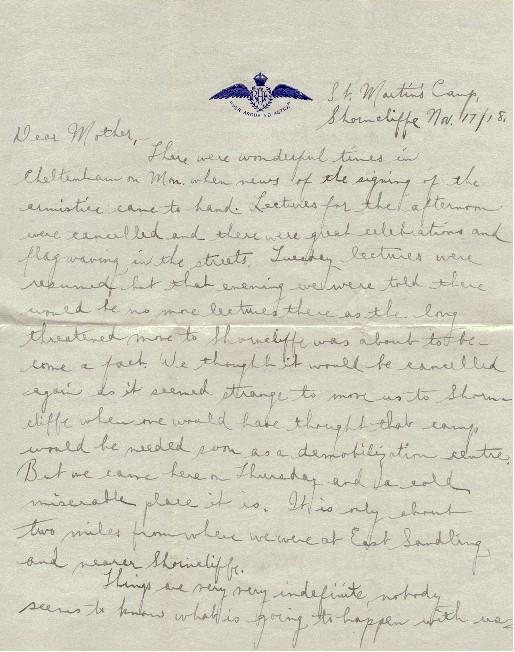 PER ARDUA AD ASTRA
St. Martin's Camp,
Shorncliffe Nov. 17/18.
Dear Mother,
There were wonderful times in
Cheltenham on Mon. when news of the signing of the
armistice came to hand. Lectures for the afternoon
were cancelled and there were great celebrations and
flag waving in the streets. Tuesday lectures were
resumed, but that evening we were told there
would be no more lectures there as the long
threatened move to Shorncliffe was about to be-
come a fact. We thought it would be cancelled
again as it seemed strange to move us to Shorn-
cliffe when one would have thought that camp
would be needed soon as a demobilization centre.
But we came here on Thursday and a cold
miserable place it is. It is only about
two miles from where we were at East Sandling
and nearer Shorncliffe.
Things are very very indefinite, nobody
seems to know what is going to happen with us